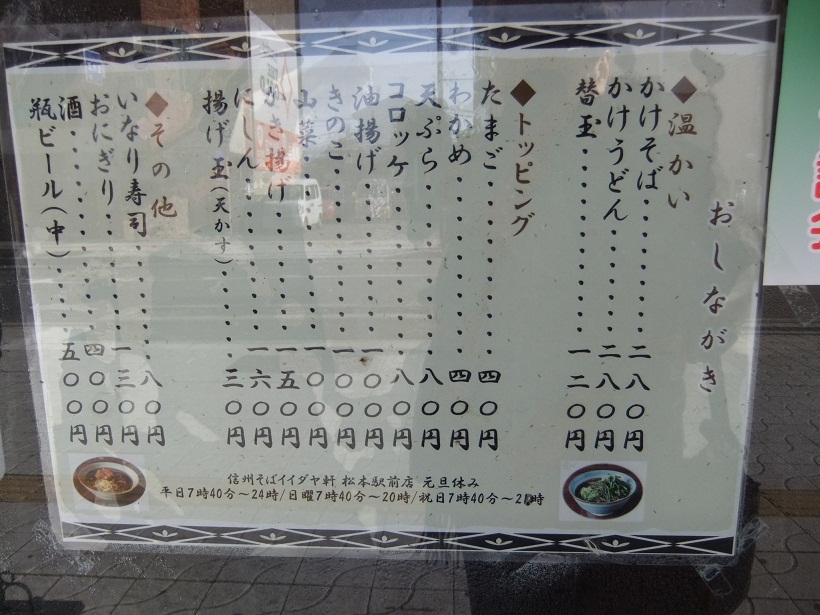 おしながき
◆温かい
かけそば……二八〇円
かけうどん……二八〇円
替玉……一二〇円
◆トッピング
たまご……四〇円
わかめ……四〇円
天ぷら……八〇円
コロッケ……八〇円
油揚げ……一〇〇円
きのこ……一〇〇円
山菜……一〇〇円
かき揚げ……一五〇円
にしん……一六〇円
揚げ玉(天かす)……三〇円
◆その他
いなり寿司……八〇円
おにぎり……一三〇円
酒……四〇〇円
瓶ビール(中)……五〇〇円
信州そばイイダヤ軒 松本駅前店 元旦休み
平日7時40分～24時/日曜7時40分～20時/祝日7時40分～21時